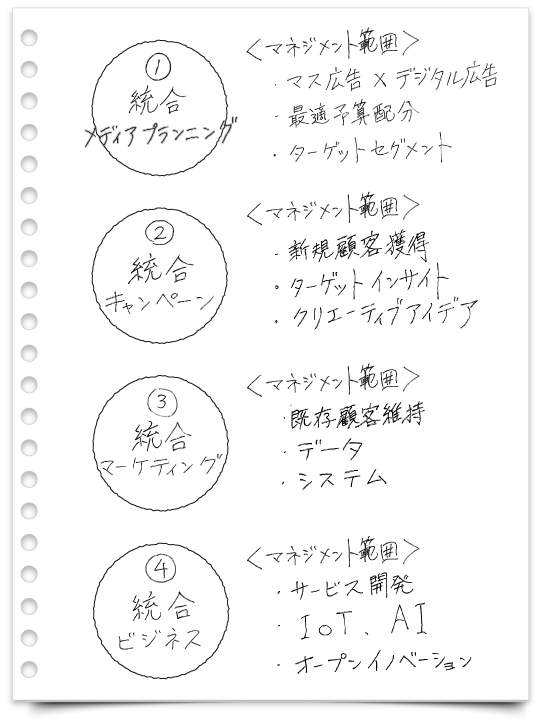 ①
統合
メディアプランニング
<マネジメント範囲>
・マス広告×デジタル広告
・最適予算配分
・ターゲットセグメント
②
統合
キャンペーン
<マネジメント範囲>
・新規顧客獲得
・ターゲットインサイト
・クリエーティブアイデア
③
統合
マーケティング
<マネジメント範囲>
・既存顧客維持
・データ
・システム
④
統合
ビジネス
<マネジメント範囲>
・サービス開発
・IoT、AI
・オープンイノベーション